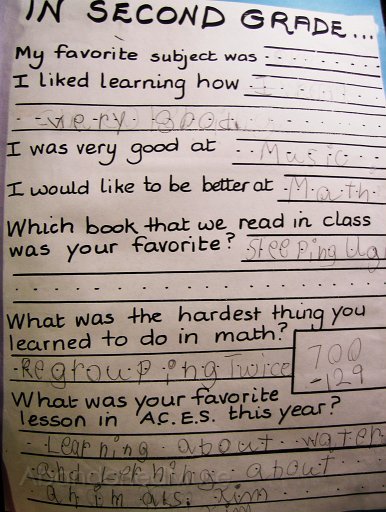 IN SECOND GRADE...
My favorite subject was
I liked learning how I
very good
I was very good at Music
I would like to be better at Math
Which book that we read in class
was your favorite? Sleeping Ug
What was the hardest thing you
learned to do in math?
Regrouping Twice
700
-129
What was your favorite
lesson in A.C.E.S. this year?
Learning about water
and lerning about
animals.